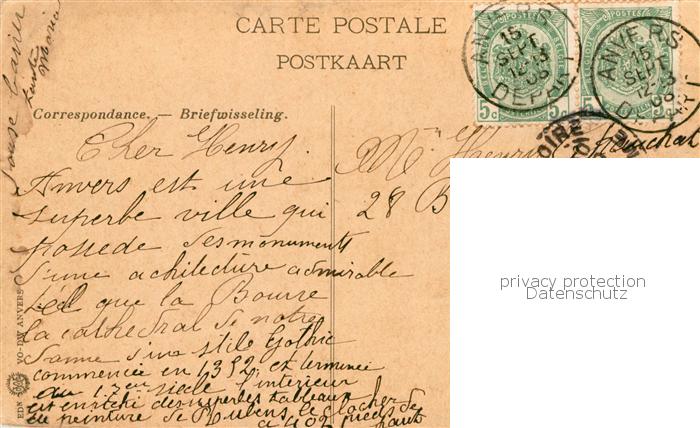 CARTE POSTALE
POSTKAART
ANVERS
15
SEPT
12-3
06
DEPART
5c 5c
ANVERS
15
SEPT
12-3
06
DEPART
5
Correspondance. — Briefwisseling.
Cher Henry.
Anvers est une
superbe ville qui
possede des monuments
d'une achitecture admirable
que la Bourse
La cathedral de notre
Dame d'une stile Gothic
commencée en 1352 et terminée
au siecle l'interieur
est enrichi des superbes tableaux
de peinture de Rubens, le clocher de
a 402 pieds de
haut
Mr Henri
28 B
EDN VO-DW ANVERS
privacy protection
Datenschutz